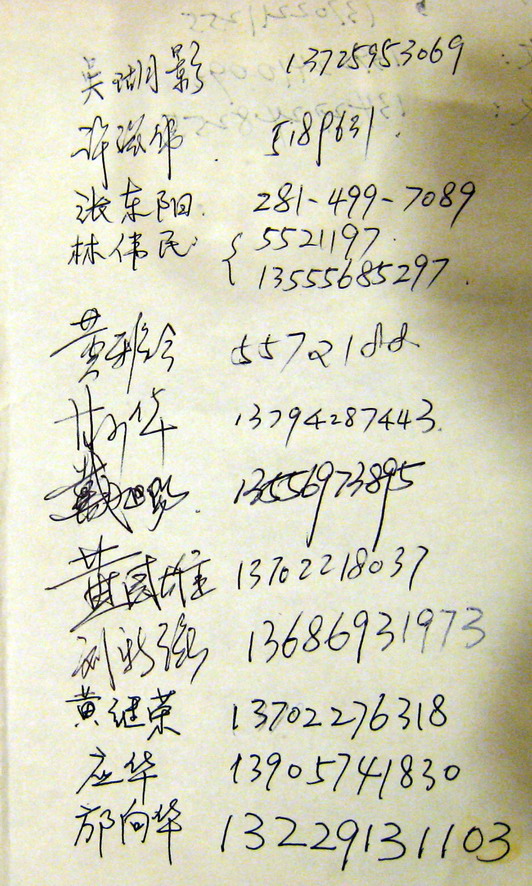 吴瑚影 13725953069
许强伟. 5189631.
张东阳. 281-499-7089
林伟民: 5521197.
13555685297.
黄 5572188
甘 华 13794287443.
戴 13556973895
黄国雄 13702218037
刘新强 13686931973
黄继荣 13702276318
应华 13905741830
邝向华 13229131103